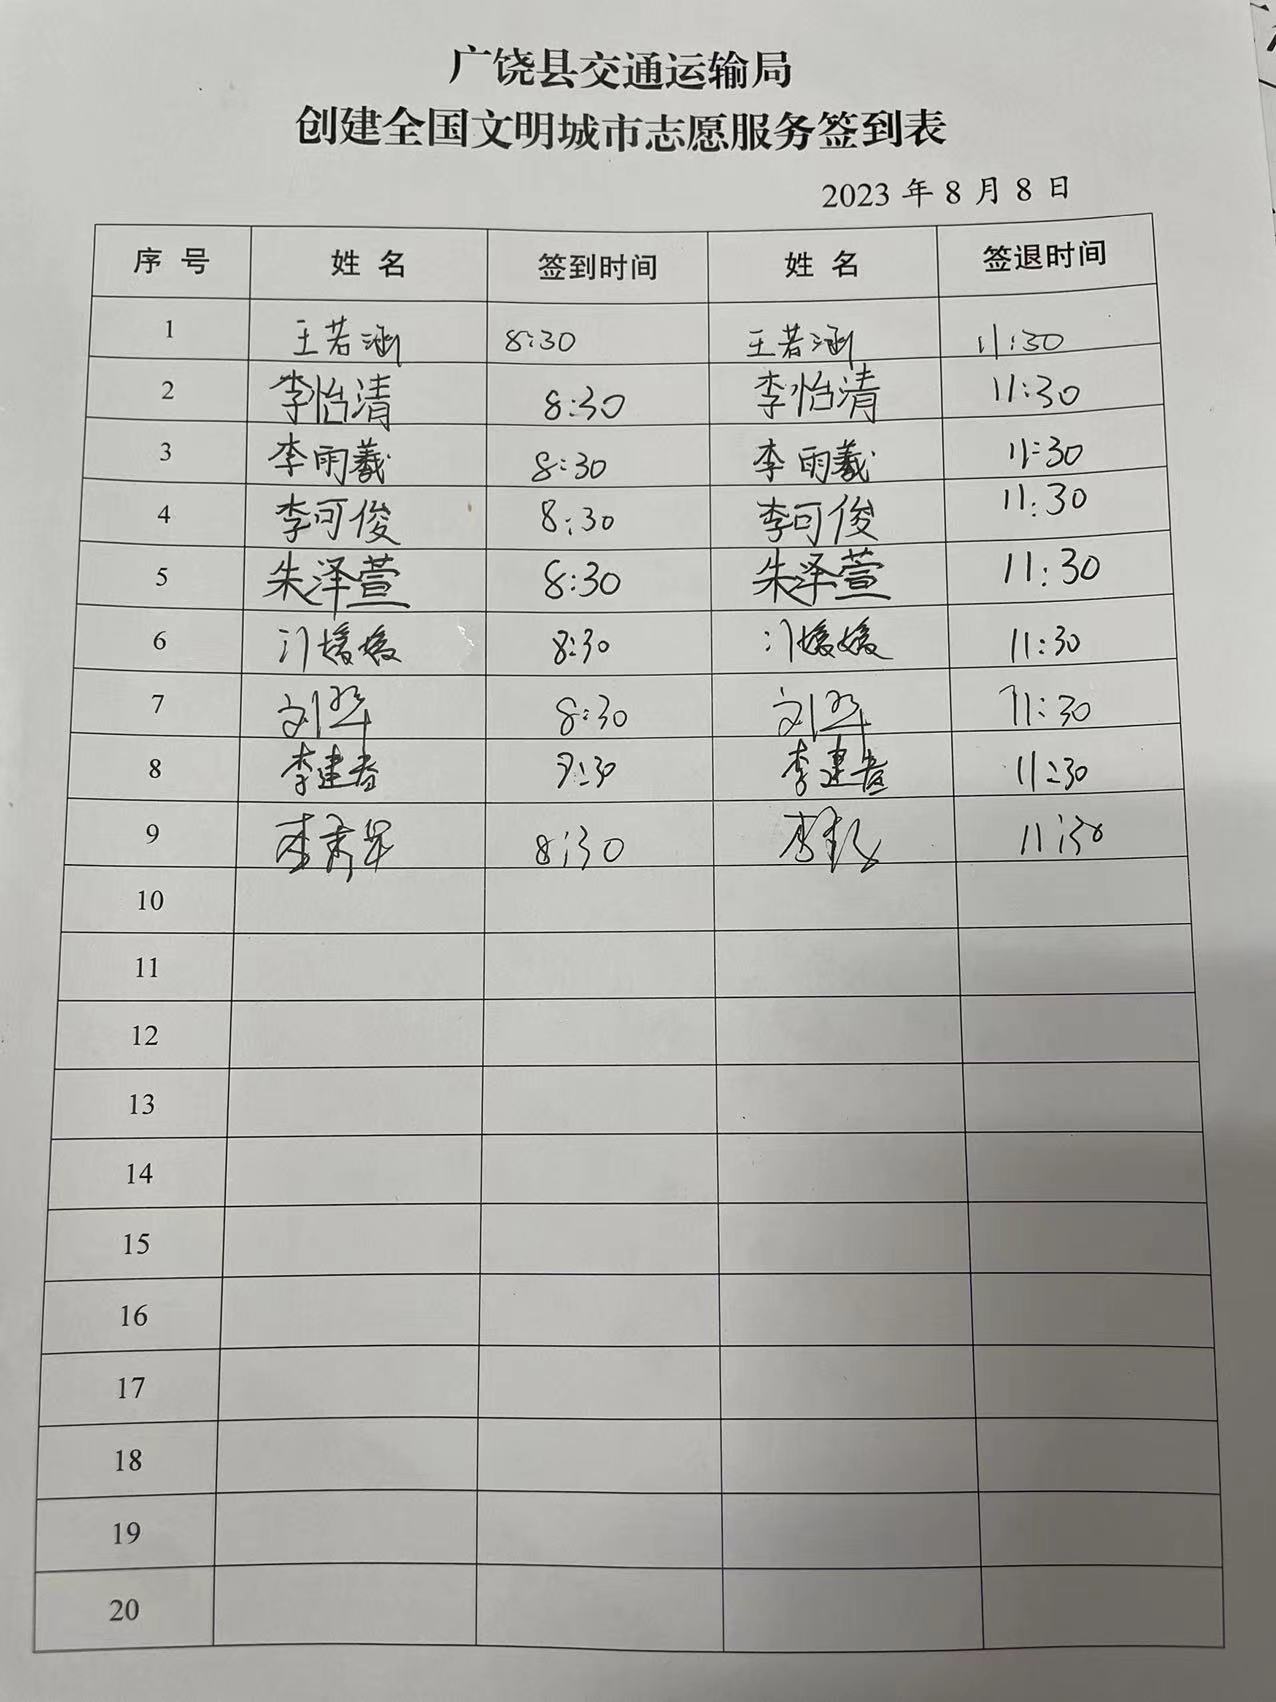 广饶县交通运输局
创建全国文明城市志愿服务签到表
2023 年 8 月 8 日
序 号 姓 名 签到时间 姓 名 签退时间
1 王若涵 8:30 王若涵 11:30
2 李怡清 8:30 李怡清 11:30
3 李雨羲 8:30 李雨羲 11:30
4 李可俊 8:30 李可俊 11:30
5 朱泽萱 8:30 朱泽萱 11:30
6 8:30 11:30
7 刘华 8:30 刘华 11:30
8 李建春 11:30
9 李 8:30 李 11:30
10
11
12
13
14
15
16
17
18
19
20